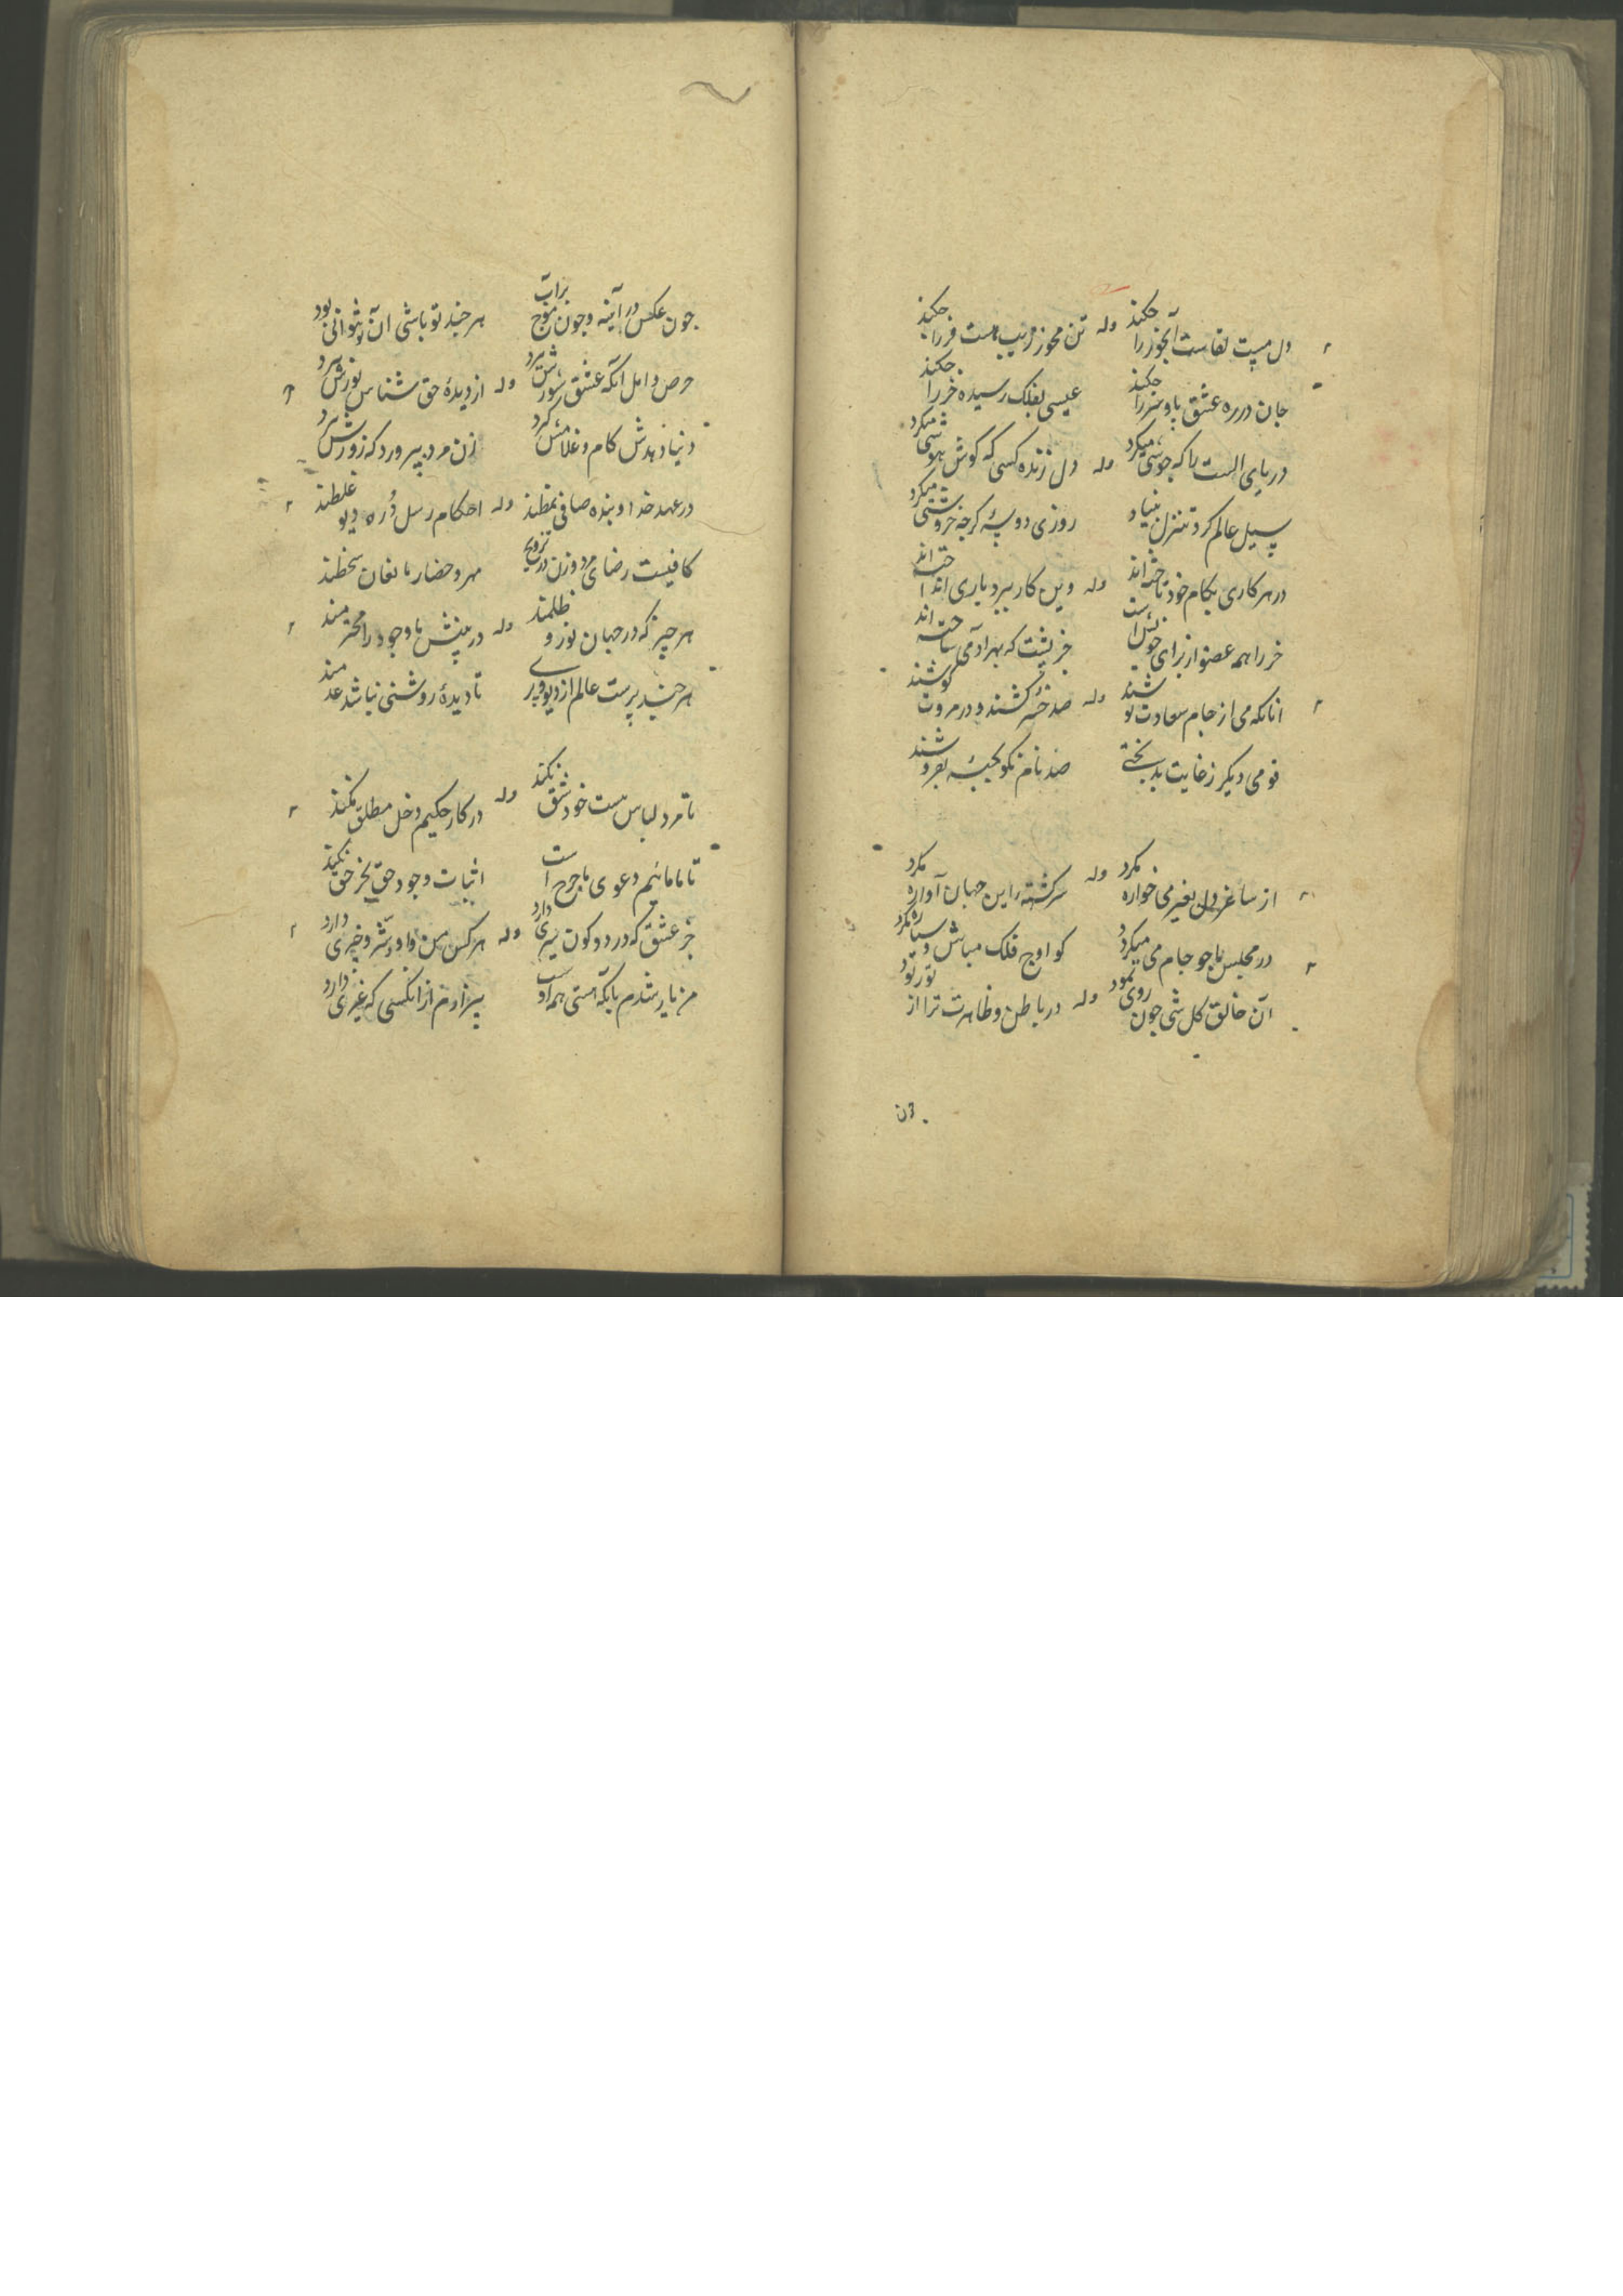 دل مست لقاست آبخور را چکند وله تن محو فریب هست فر را چکند
جان در ره عشق پا و سر را چکند عیسی بفلک رسیده خر را چکند
دریای الست را که جوشی میکرد وله دل زنده کسی که گوش هوشی میکرد
سیل عالم کرد تنزل بنیاد روزی دو سه گرچه خروشی میکرد
در هر کاری بکام خود تاخته اند وله وین کار ببردباری انداخته اند
خر را همه عضو از برای خویش است خر پشت که بهر آدمی ساخته اند
انانکه می از جام سعادت نوشند وله صد خشم کشند و در مروت کوشند
قومی دیگر ز غایت بدبختی صد نام نکو بحبه بفروشند
از ساغر دل بغیر می خواره نکرد وله سرگشته را این جهان آواره نکرد
در مجلس ما چو جام می میگردد کو اوج فلک مباش و سیاره نکرد
آن خالق کل شی چون روی نمود وله در باطن و ظاهرت ترا از تو ربود
چون عکس در آینه و چون موج بر آب هر چند تو باشی آن و نتوانی بود
حرص و امل آنکه عشق شورش ببرد وله از دیدهٔ حق شناس نورش ببرد
دنیا دهدش کام و غلامش گیرد زن مرد بپرورد که زورش ببرد
در عهد خدا و بنده صافی نمطند وله احکام رسل در ره دیو غلطند
کافیست رضای مرد و زن در تزویج مهر و حضار مانعان سخطند
هر چیز که در جهان نور و ظلمند وله در بینش با وجود را محترمند
هر چند پرست عالم از دیو و پری تا دیدهٔ روشنی نباشد عدمند
تا مرد لباس هست خود شق نکند وله در کار حکیم دخل مطلق نکند
تا ما مائیم دعوی ما جرح است اثبات وجود حق بجز حق نکند
جز عشق که در دو کون سیری دارد وله هر کس من و او و شر و خیری دارد
من یار شدم بآنکه هستی همه اوست بیزارم از آنکسی که غیری دارد